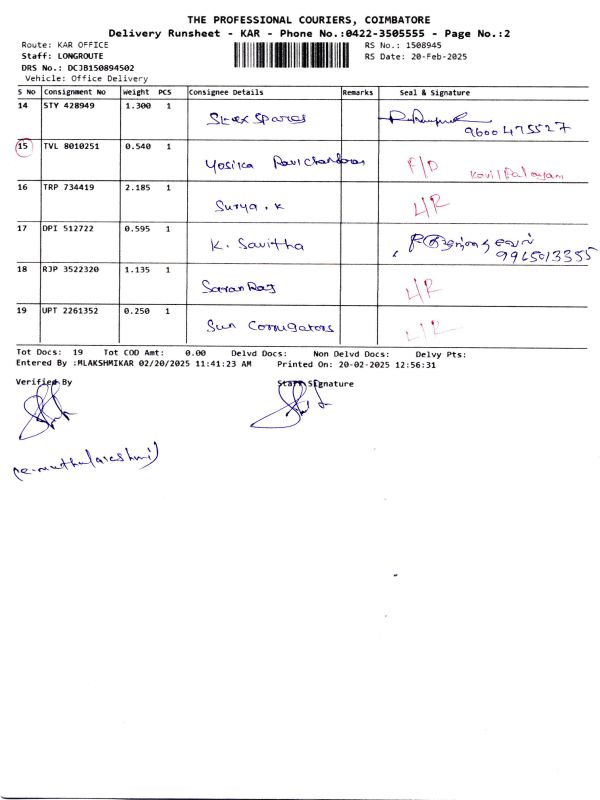 THE PROFESSIONAL COURIERS, COIMBATORE
Delivery Runsheet - KAR - Phone No.:0422-3505555 - Page No.:2
Route: KAR OFFICE RS No.: 1508945
Staff: LONGROUTE RS Date: 20-Feb-2025
DRS No.: DCJB150894502
Vehicle: Office Delivery
S No Consignment No Weight PCS Consignee Details Remarks Seal & Signature
14 STY 428949 1.300 1 Spares 9600475527
15 TVL 8010251 0.540 1 Yosika Ravichandran F/D Kovilpalayam
16 TRP 734419 2.185 1 Surya . K L/R
17 DPI 512722 0.595 1 K. Savitha 9965013355
18 RJP 3522320 1.135 1 Saran Raj L/R
19 UPT 2261352 0.250 1 Sun Corrugators L/R
Tot Docs: 19 Tot COD Amt: 0.00 Delvd Docs: Non Delvd Docs: Delvy Pts:
Entered By :MLAKSHMIKAR 02/20/2025 11:41:23 AM Printed On: 20-02-2025 12:56:31
Verified By Staff Signature